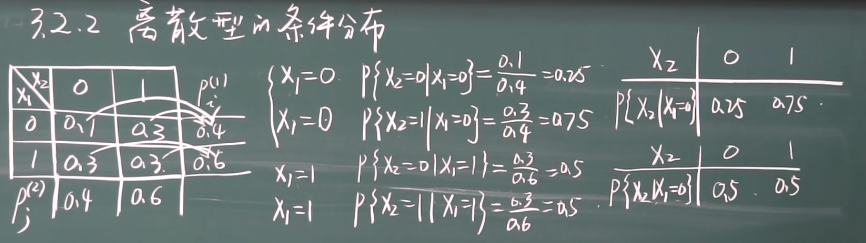 3.2.2 离散型的条件分布
X₁ \ X₂ 0 1 Pᵢ⁽¹⁾
0 0.1 0.3 0.4
1 0.3 0.3 0.6
Pⱼ⁽²⁾ 0.4 0.6
X₁=0 P{X₂=0|X₁=0}=0.1/0.4=0.25
X₁=0 P{X₂=1|X₁=0}=0.3/0.4=0.75
X₁=1 P{X₂=0|X₁=1}=0.3/0.6=0.5
X₁=1 P{X₂=1|X₁=1}=0.3/0.6=0.5
X₂ 0 1
P{X₂|X₁=0} 0.25 0.75
X₂ 0 1
P{X₂|X₁=0} 0.5 0.5